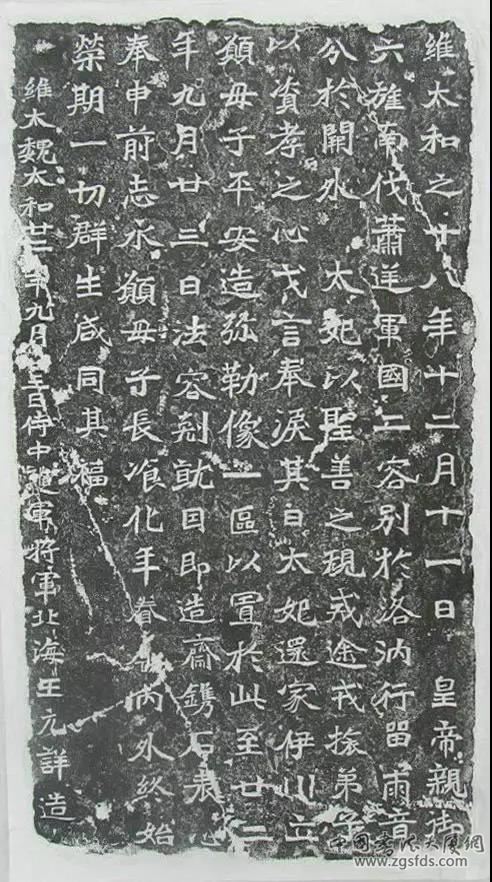 維太和之十八年十二月十一日 皇帝親御
六旌南伐蕭逆軍國二容別於洛汭行留兩音
分於闕外 太妃以聖善之規戒途戒旅弟子
以資孝之心戈言奉淚其日太妃還家伊川立
願母子平安造弥勒像一區以置於此至廿二
年九月廿三日法容剋就因即造齋鐫石表心
奉申前志永願母子長飡化年眷屬內外終始
榮期一切群生咸同其福
維大魏太和廿二年九月廿三日侍中護軍將軍北海王元詳造
中国书法大厦網
www.zgsfds.com